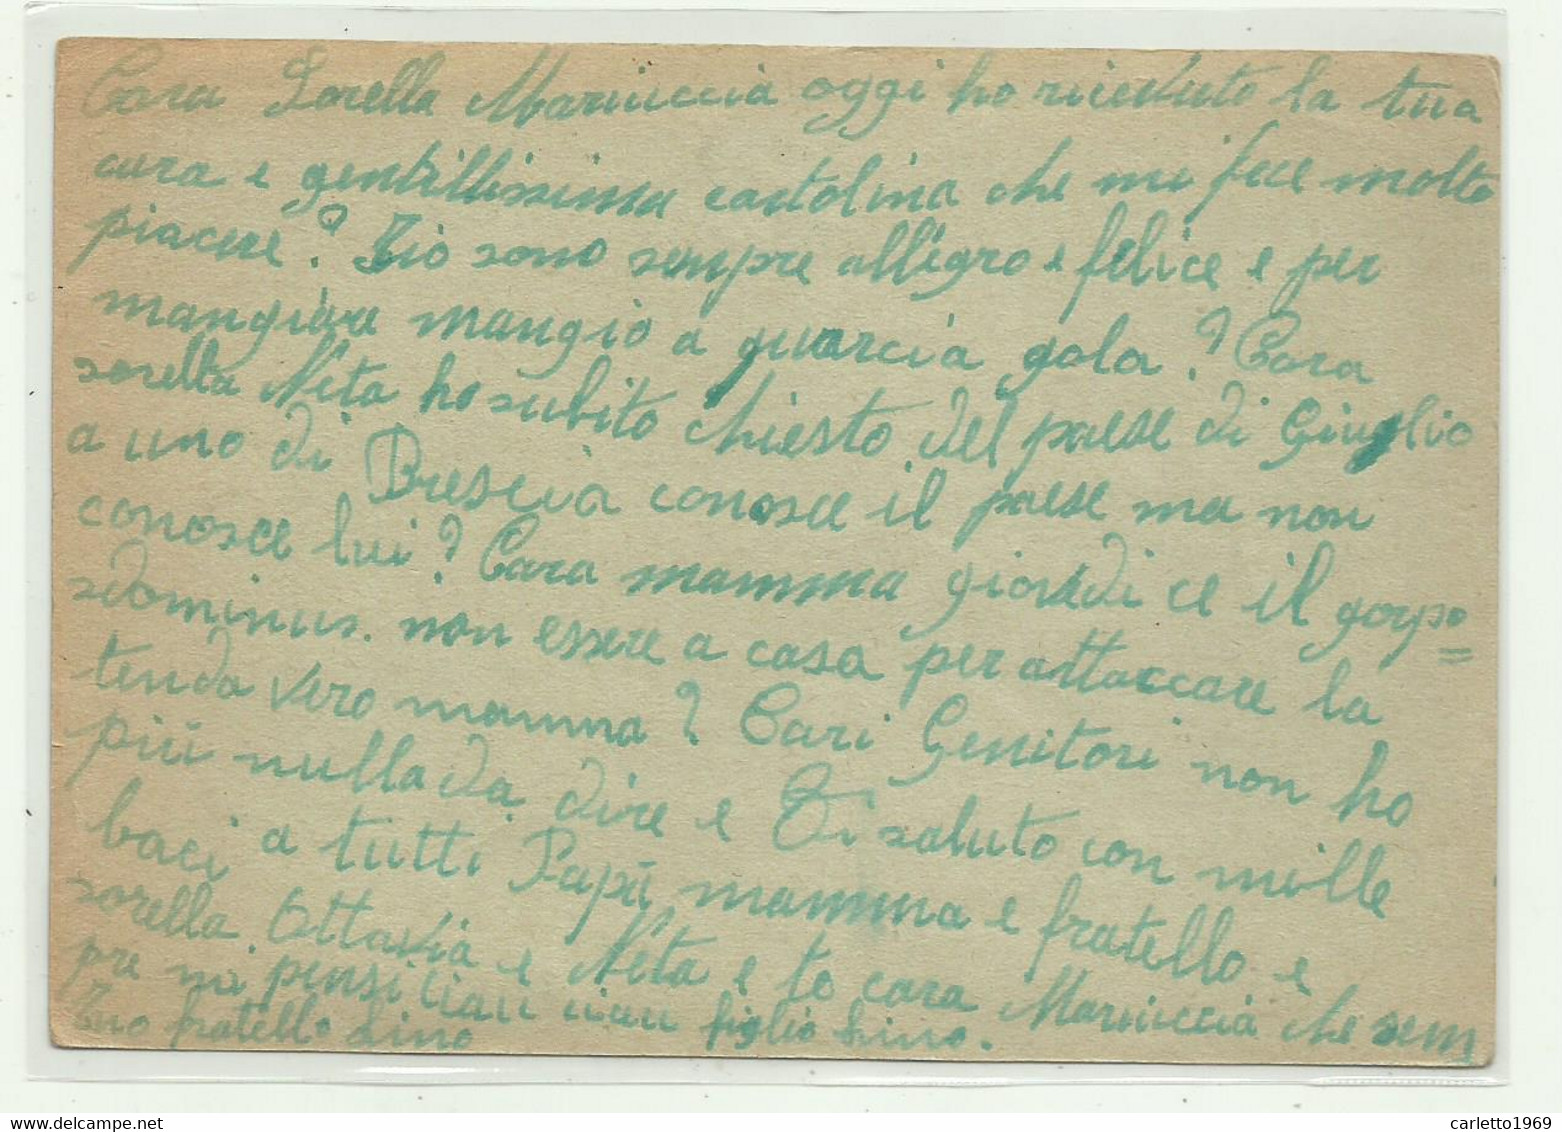 Cara Sorella Mariuccia oggi ho ricevuto la tua
cara e gentillissima cartolina che mi fece molto
piacere? Zio sono sempre allegro e felice e per
mangiare mangio a quarcia gola? Cara
sorella Neta ho subito chiesto del paese di Giuglio
a uno di Brescia conosce il paese ma non
conosce lui? Cara mamma giovedi ce il gorpo=
sdominus. non essere a casa per attaccare la
tenda vero mamma? Cari Genitori non ho
più nulla da dire e Vi saluto con mille
baci a tutti Papà mamma e fratello e
sorella. Ottavia e Neta e te cara Mariuccia che sem
pre mi pensi ciau ciau figlio Lino.
Tuo fratello Lino
carletto1969